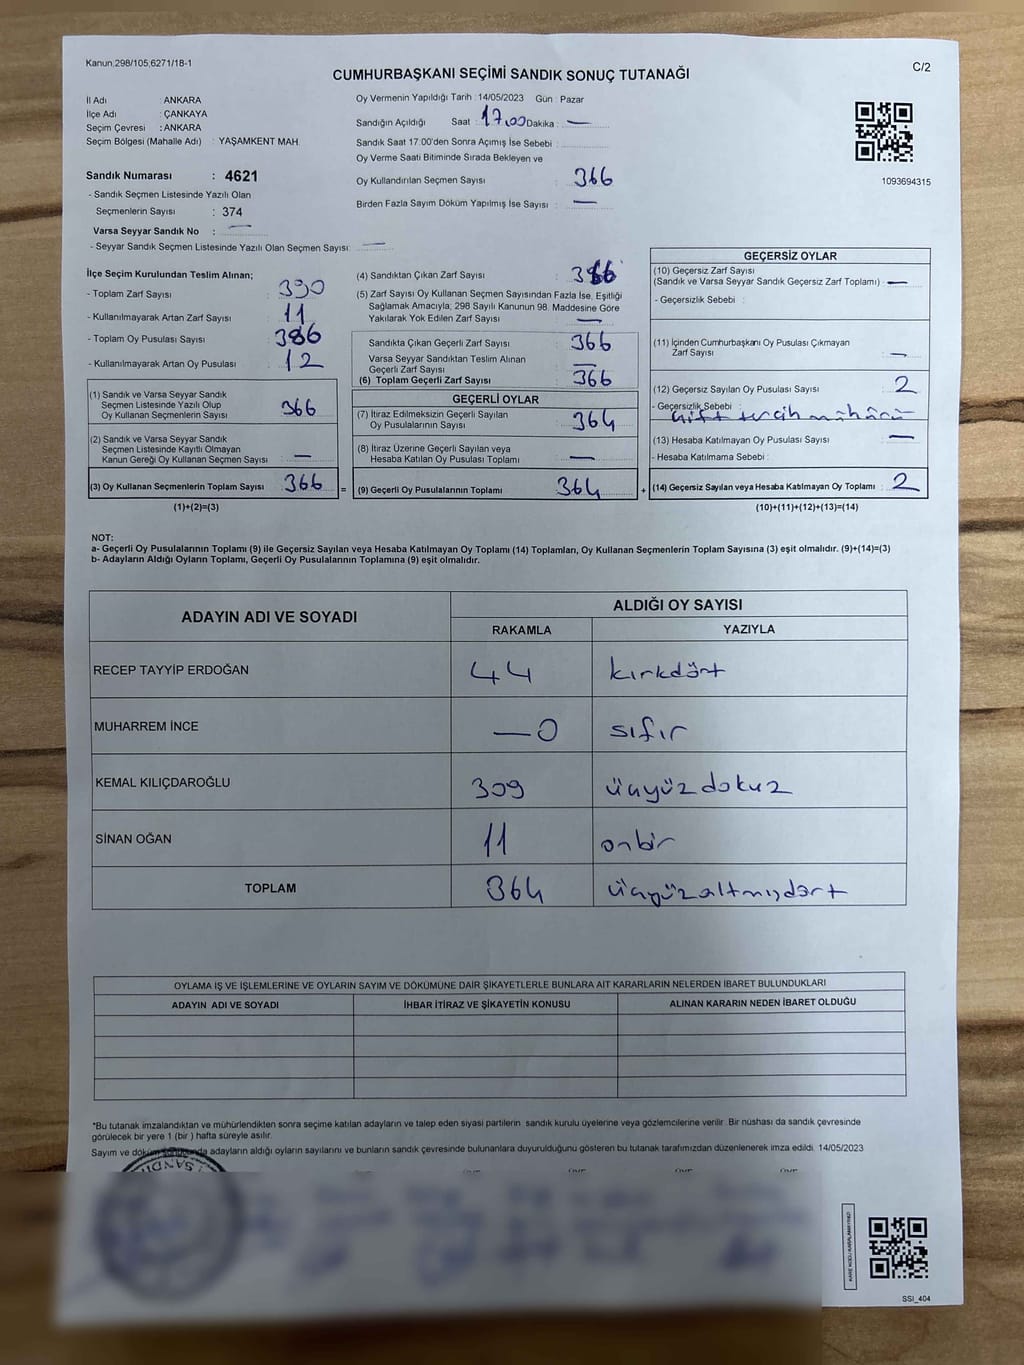 Kanun,298/105,6271/18-1
C/2
CUMHURBAŞKANI SEÇİMİ SANDIK SONUÇ TUTANAĞI
İl Adı ANKARA
İlçe Adı : ÇANKAYA
Seçim Çevresi : ANKARA
Seçim Bölgesi (Mahalle Adı) : YAŞAMKENT MAH.
Sandık Numarası : 4621
- Sandık Seçmen Listesinde Yazılı Olan
Seçmenlerin Sayısı : 374
Varsa Seyyar Sandık No : —
- Seyyar Sandık Seçmen Listesinde Yazılı Olan Seçmen Sayısı: —
Oy Vermenin Yapıldığı Tarih : 14/05/2023 Gün : Pazar
Sandığın Açıldığı Saat : 17.00 Dakika : —
Sandık Saat 17.00'den Sonra Açımış İse Sebebi :
Oy Verme Saati Bitiminde Sırada Bekleyen ve
Oy Kullandırılan Seçmen Sayısı : 366
Birden Fazla Sayım Döküm Yapılmış İse Sayısı : —
1093694315
İlçe Seçim Kurulundan Teslim Alınan;
- Toplam Zarf Sayısı : 390
- Kullanılmayarak Artan Zarf Sayısı : 11
- Toplam Oy Pusulası Sayısı : 386
- Kullanılmayarak Artan Oy Pusulası : 12
(1) Sandık ve Varsa Seyyar Sandık
Seçmen Listesinde Yazılı Olup
Oy Kullanan Seçmenlerin Sayısı : 366
(2) Sandık ve Varsa Seyyar Sandık
Seçmen Listesinde Kayıtlı Olmayan
Kanun Gereği Oy Kullanan Seçmen Sayısı : —
(3) Oy Kullanan Seçmenlerin Toplam Sayısı : 366
(1)+(2)=(3)
(4) Sandıktan Çıkan Zarf Sayısı : 366
(5) Zarf Sayısı Oy Kullanan Seçmen Sayısından Fazla İse, Eşitliği
Sağlamak Amacıyla; 298 Sayılı Kanunun 98. Maddesine Göre
Yakılarak Yok Edilen Zarf Sayısı : —
Sandıkta Çıkan Geçerli Zarf Sayısı : 366
Varsa Seyyar Sandıktan Teslim Alınan
Geçerli Zarf Sayısı : —
(6) Toplam Geçerli Zarf Sayısı : 366
GEÇERLİ OYLAR
(7) İtiraz Edilmeksizin Geçerli Sayılan
Oy Pusulalarının Sayısı : 364
(8) İtiraz Üzerine Geçerli Sayılan veya
Hesaba Katılan Oy Pusulası Toplamı : —
= (9) Geçerli Oy Pusulalarının Toplamı : 364
GEÇERSİZ OYLAR
(10) Geçersiz Zarf Sayısı
(Sandık ve Varsa Seyyar Sandık Geçersiz Zarf Toplamı) : —
- Geçersizlik Sebebi :
(11) İçinden Cumhurbaşkanı Oy Pusulası Çıkmayan
Zarf Sayısı : —
(12) Geçersiz Sayılan Oy Pusulası Sayısı : 2
- Geçersizlik Sebebi : çift tercih mühürü
(13) Hesaba Katılmayan Oy Pusulası Sayısı : —
- Hesaba Katılmama Sebebi :
+ (14) Geçersiz Sayılan veya Hesaba Katılmayan Oy Toplamı : 2
(10)+(11)+(12)+(13)=(14)
NOT:
a- Geçerli Oy Pusulalarının Toplamı (9) ile Geçersiz Sayılan veya Hesaba Katılmayan Oy Toplamı (14) Toplamları, Oy Kullanan Seçmenlerin Toplam Sayısına (3) eşit olmalıdır. (9)+(14)=(3)
b- Adayların Aldığı Oyların Toplamı, Geçerli Oy Pusulalarının Toplamına (9) eşit olmalıdır.
ADAYIN ADI VE SOYADI
ALDIĞI OY SAYISI
RAKAMLA YAZIYLA
RECEP TAYYİP ERDOĞAN 44 kırkdört
MUHARREM İNCE —0 sıfır
KEMAL KILIÇDAROĞLU 309 üçyüzdokuz
SİNAN OĞAN 11 onbir
TOPLAM 364 üçyüzaltmışdört
OYLAMA İŞ VE İŞLEMLERİNE VE OYLARIN SAYIM VE DÖKÜMÜNE DAİR ŞİKAYETLERLE BUNLARA AİT KARARLARIN NELERDEN İBARET BULUNDUKLARI
ADAYIN ADI VE SOYADI İHBAR İTİRAZ VE ŞİKAYETİN KONUSU ALINAN KARARIN NEDEN İBARET OLDUĞU
*Bu tutanak imzalandıktan ve mühürlendikten sonra seçime katılan adayların ve talep eden siyasi partilerin sandık kurulu üyelerine veya gözlemcilerine verilir. Bir nüshası da sandık çevresinde
görülecek bir yere 1 (bir ) hafta süreyle asılır.
Sayım ve döküm sonucunda adayların aldığı oyların sayılarını ve bunların sandık çevresinde bulunanlara duyurulduğunu gösteren bu tutanak tarafımızdan düzenlenerek imza edildi. 14/05/2023
SSI_404